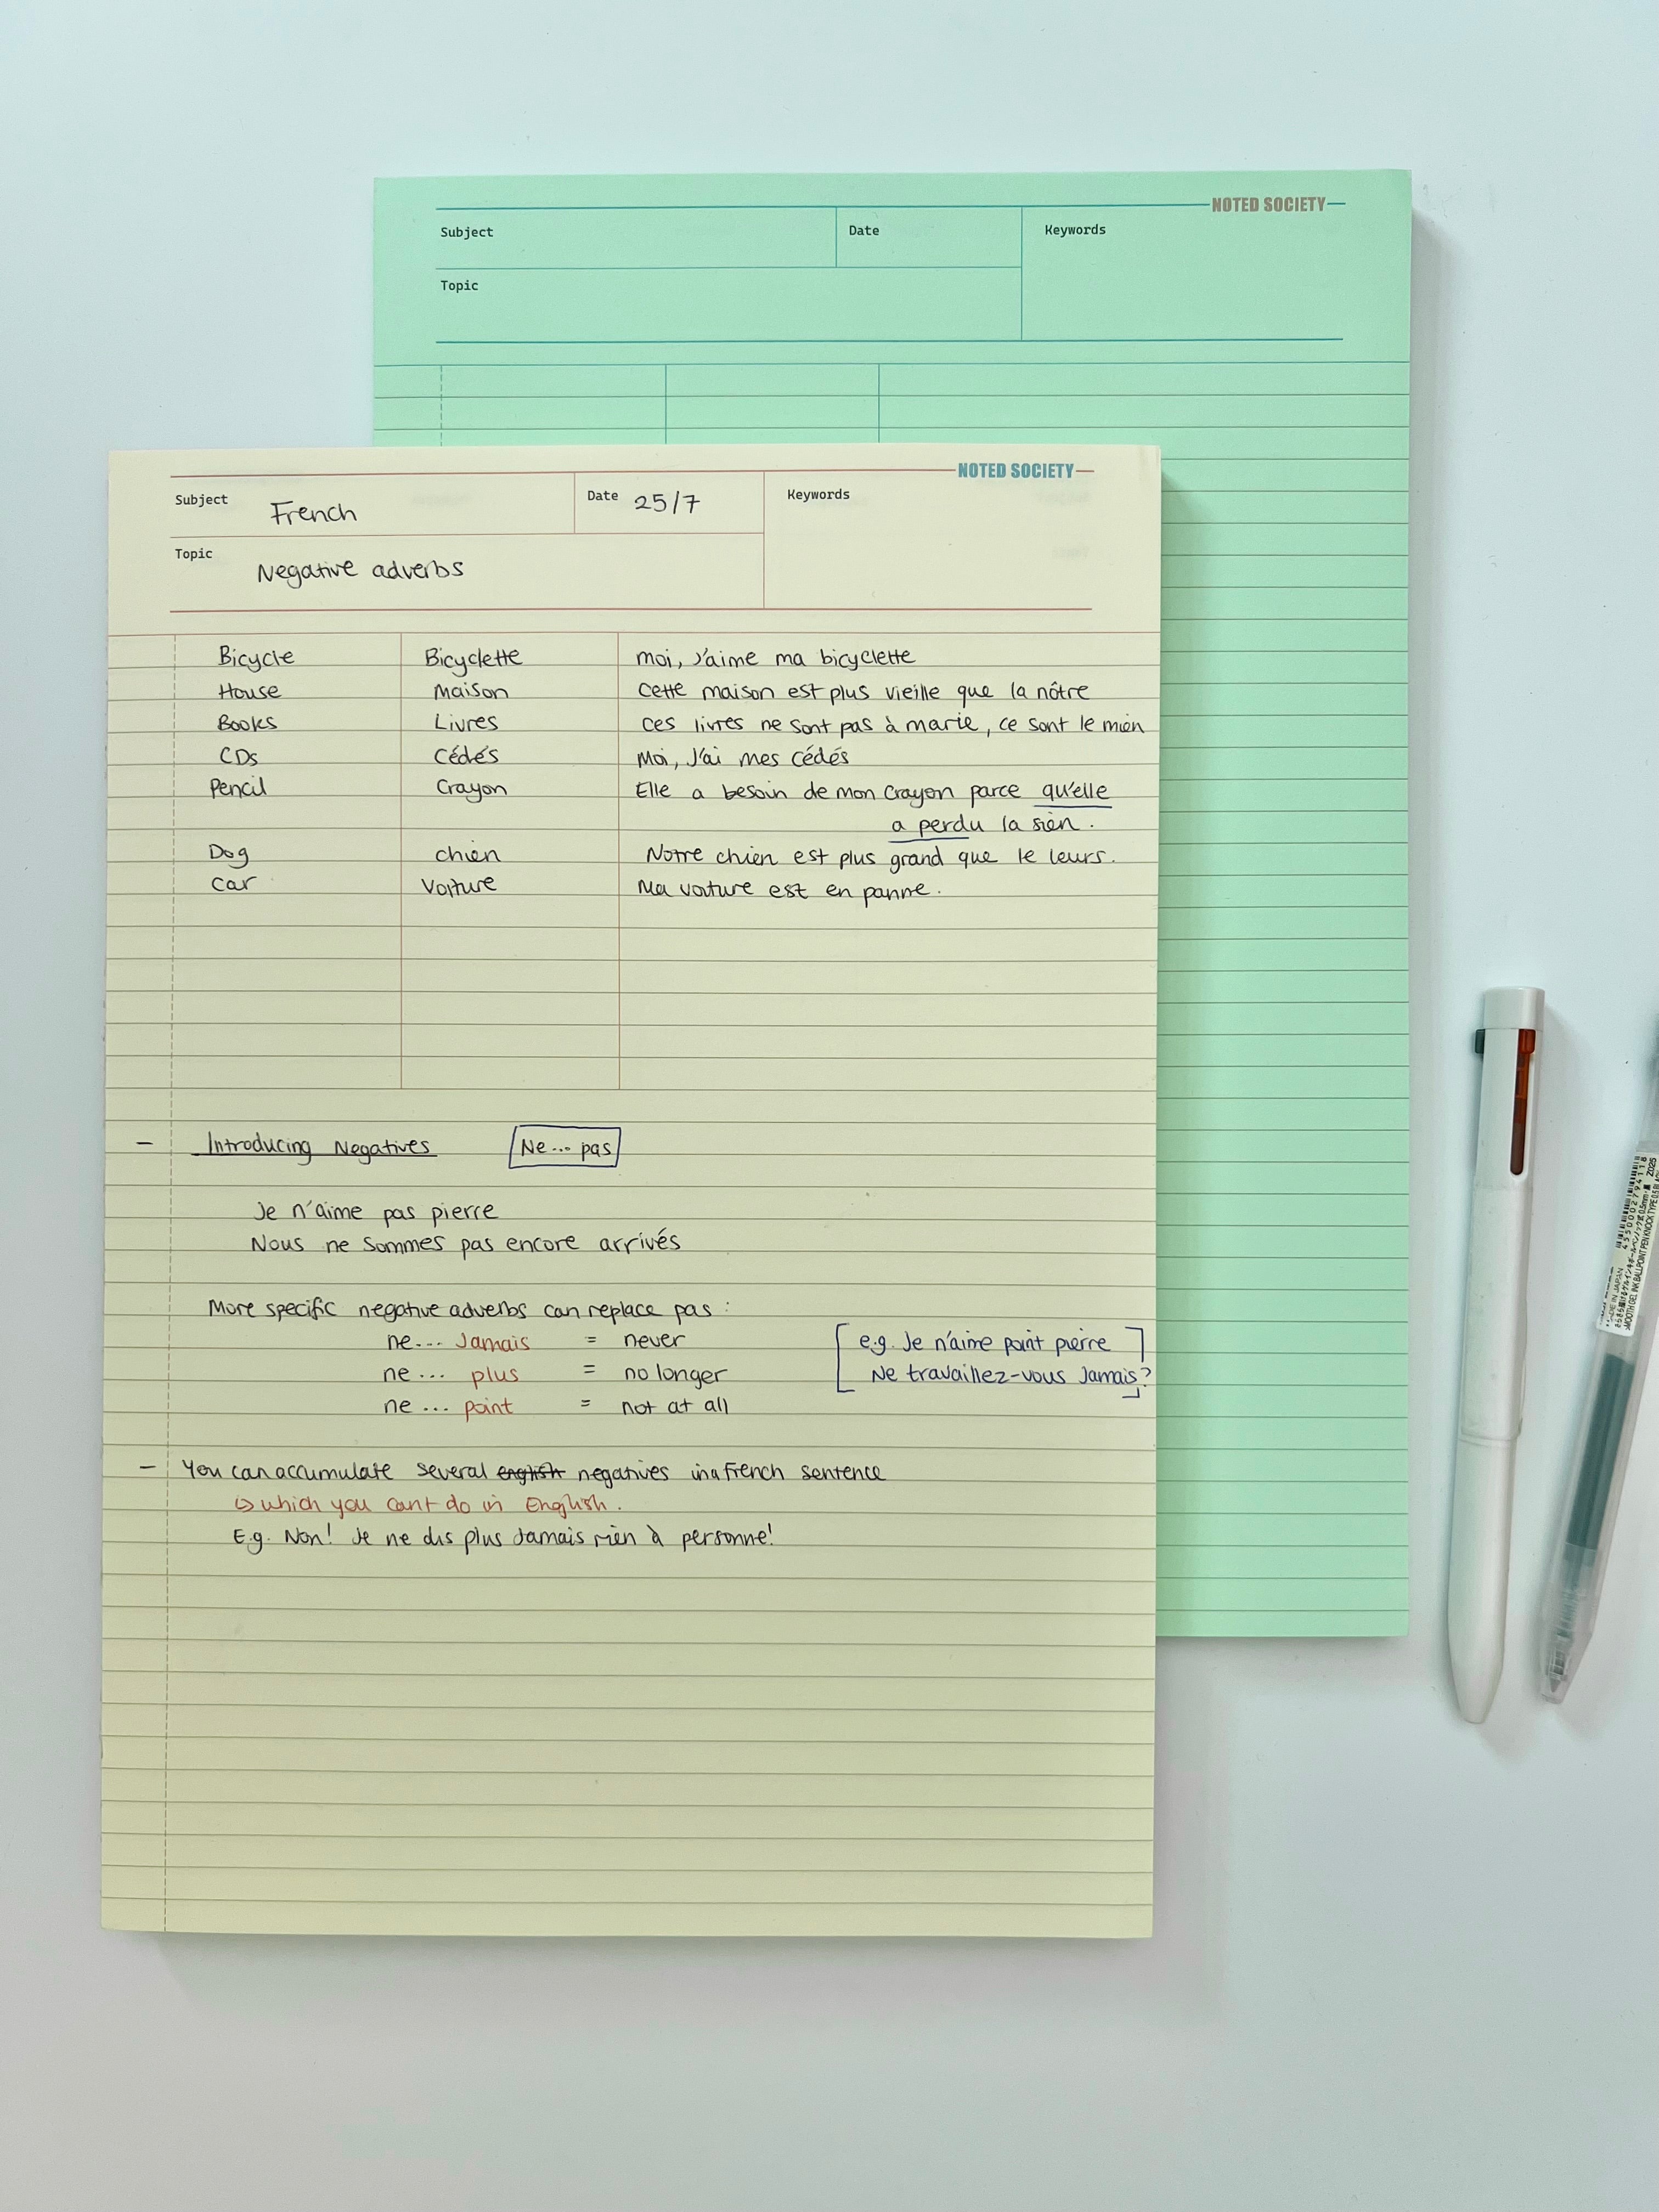 NOTED SOCIETY
Subject
Date
Keywords
Topic
NOTED SOCIETY
Subject French
Date 25/7
Keywords
Topic Negative adverbs
Bicycle Bicyclette moi, j'aime ma bicyclette
House Maison Cette maison est plus vieille que la nôtre
Books Livres Ces livres ne sont pas à marie, ce sont le mien
CDs Cédés Moi, J'ai mes cédés
Pencil Crayon Elle a besoin de mon crayon parce qu'elle
a perdu la sien.
Dog chien Notre chien est plus grand que le leurs.
Car Voiture Ma voiture est en panne.
- Introducing Negatives Ne... pas
Je n'aime pas pierre
Nous ne sommes pas encore arrivés
More specific negative adverbs can replace pas:
ne... Jamais = never
ne... plus = no longer
ne... point = not at all
e.g. Je n'aime point pierre
Ne travaillez-vous Jamais?
- You can accumulate several english negatives in a French sentence
↳ which you cant do in English.
E.g. Non! Je ne dis plus Jamais rien à personne!
MADE IN JAPAN
SMOOTH GEL INK BALLPOINT PEN KNOCK TYPE